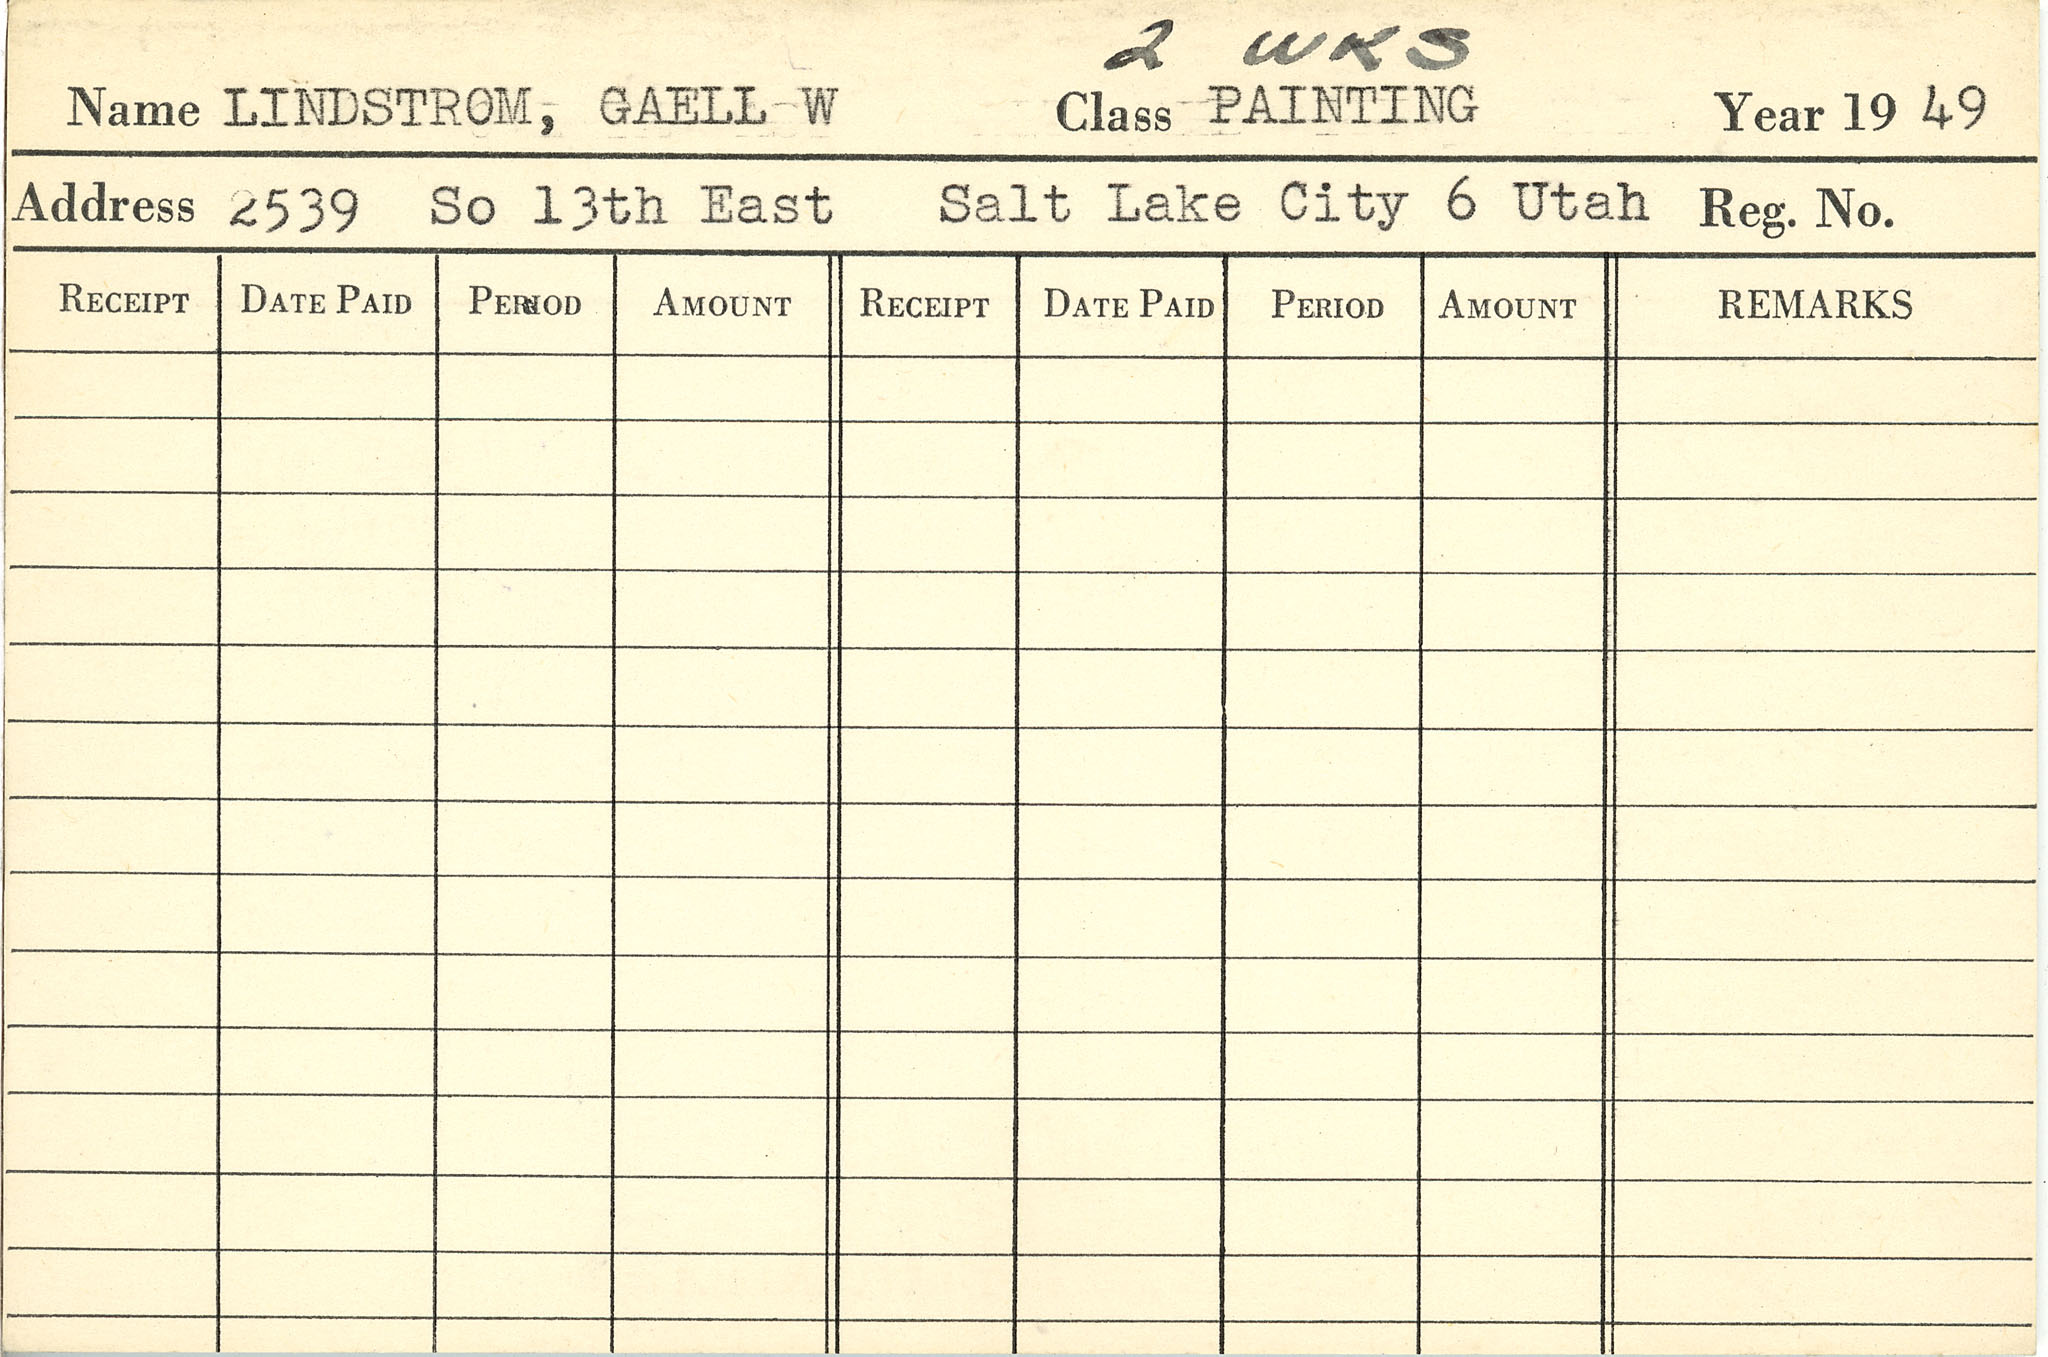 2 WKS
Name LINDSTROM, GAELL W Class PAINTING Year 19 49
Address 2539 So 13th East Salt Lake City 6 Utah Reg. No.
RECEIPT DATE PAID PERIOD AMOUNT RECEIPT DATE PAID PERIOD AMOUNT REMARKS